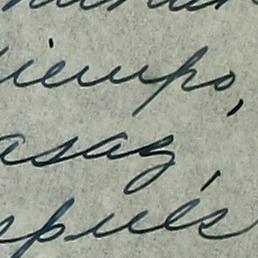 iempo,
asag,
spués